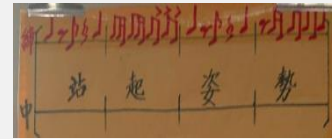 站 起 姿 勢
中